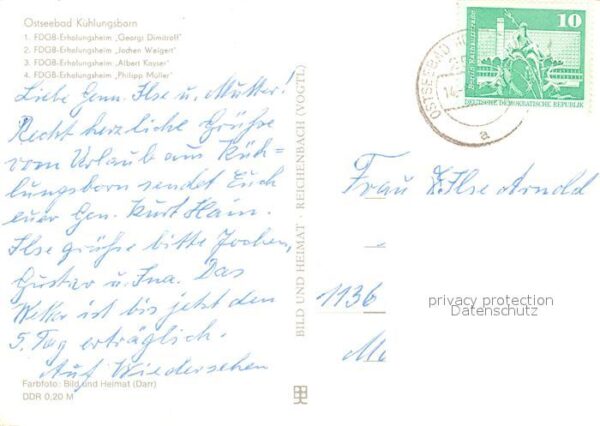 Ostseebad Kühlungsborn
1. FDGB-Erholungsheim „Georgi Dimitroff"
2. FDGB-Erholungsheim „Jochen Weigert"
3. FDGB-Erholungsheim „Albert Kayser"
4. FDGB-Erholungsheim „Philipp Müller"
Liebe Genn. Ilse u. Mutter!
Recht herzliche Grüße
vom Urlaub aus Küh-
lungsborn sendet Euch
euer Gen. Kurt Hain.
Ilse grüße bitte Jochen,
Gustav u. Ina. Das
Wetter ist bis jetzt den
5. Tag erträglich.
Auf Wiedersehen
Farbfoto: Bild und Heimat (Darr)
DDR 0,20 M
BILD UND HEIMAT · REICHENBACH (VOGTL)
10
Berlin, Rathausstraße
DEUTSCHE DEMOKRATISCHE REPUBLIK
OSTSEEBAD
14.
a
Frau Ilse Arnold
1136
privacy protection
Datenschutz